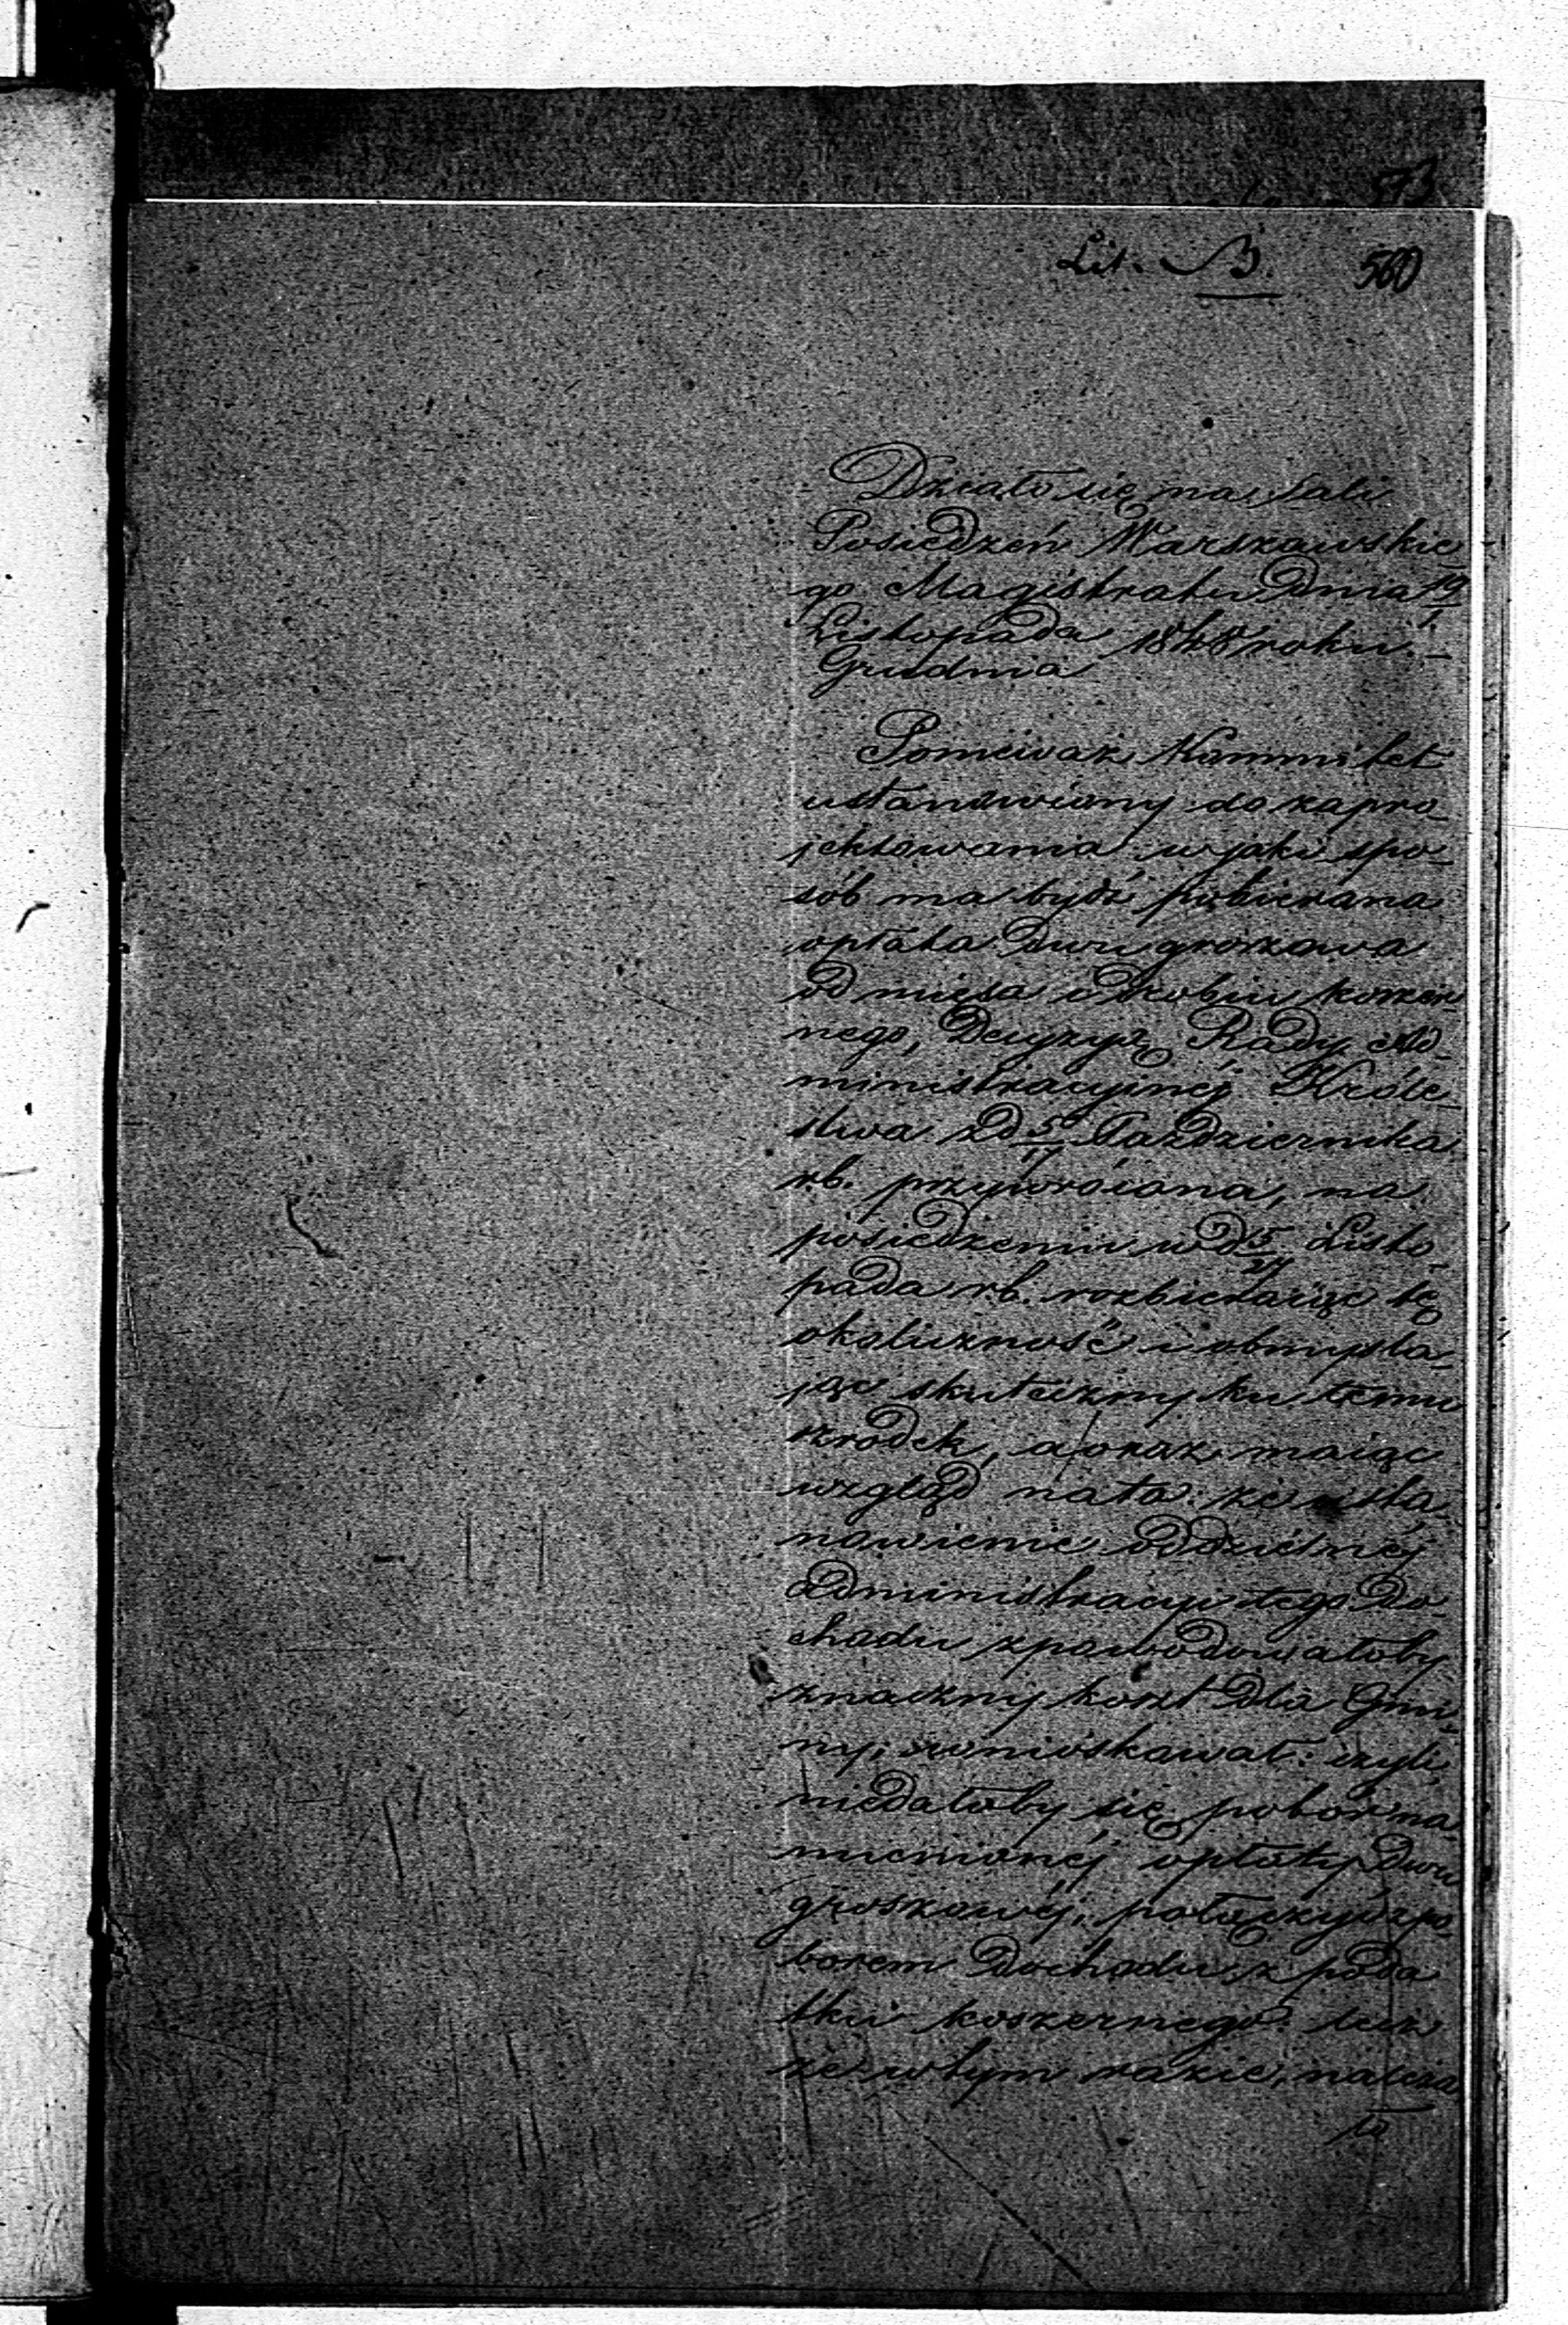 573
Lit. B. 560
Działo się na Sali
Posiedzeń Warszawskie
go Magistratu Dnia 19/1
Listopada 1848 roku.
Grudnia
Ponieważ Kommitet
ustanowiony do zapro
jektowania w jaki spo
sób ma bydź pobierana
opłata Dwu groszowa
od mięsa i drobiu koszer
nego, Decyzyą Rady Ad
ministracyjnej Króle
stwa z D 5/17 Października
rb. przywrócona, na
posiedzeniu w D 15/27 Listo
pada rb. rozbieraiąc tę
okoliczność i obmyśla
jąc skuteczny ku temu
szrodek, a oraz maiąc
wzgląd na to: że usta
nowienie oddzielnéj
administracyi tego do
chodu spowodowałoby
znaczny koszt dla Gmi
ny; wnioskował: czyli
niedałoby się pobor na
mienionéj opłaty Dwu
groszowéj, połączyć z po
borem Dochodu z poda
tku koszernego lecz
że w tym razie, należa
ło